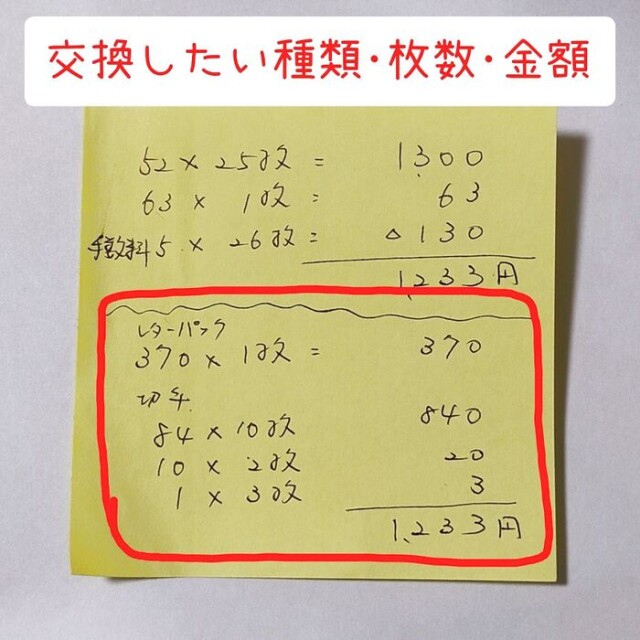 交換したい種類・枚数・金額
52 × 25枚 = 1300
63 × 1枚 = 63
手数料5 × 26枚 = △130
1,233円
レターパック
370 × 1枚 = 370
切手
84 × 10枚 840
10 × 2枚 20
1 × 3枚 3
1,233円